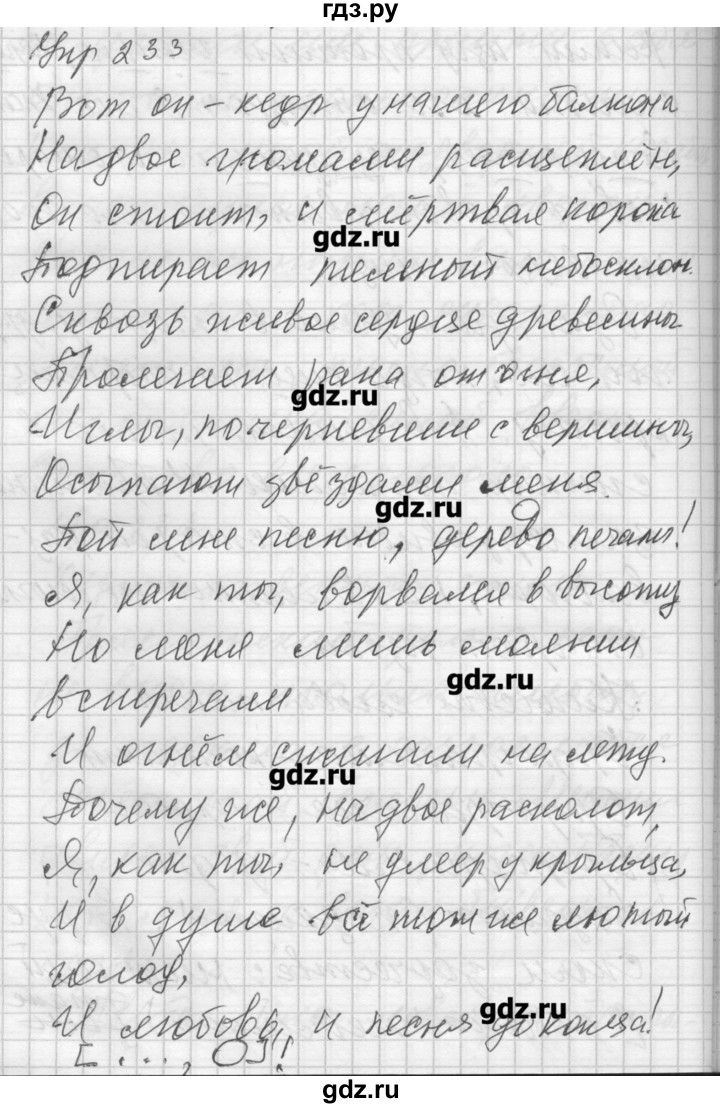 гдз.ру
Упр 233
Вот он – кедр у нашего балкона
Надвое громами расщеплён,
Он стоит, и мёртвая корона
gdz.ru
Подпирает темный небосклон.
Сквозь живое сердце древесины
Пролегает рана от огня,
gdz.ru
Иглы, почерневшие с вершины,
Осыпают звёздами меня.
gdz.ru
Пой мне песню, дерево печали!
Я, как ты, ворвался в высоту
Но меня лишь молнии
встречали
gdz.ru
И огнём сжигали на лету.
gdz.ru
Почему же, надвое расколот,
Я, как ты, не умер у крыльца,
И в душе всё тот же лютый
голод,
И любовь, и песня до конца!
gdz.ru
[ ..., О]!
gdz.ru